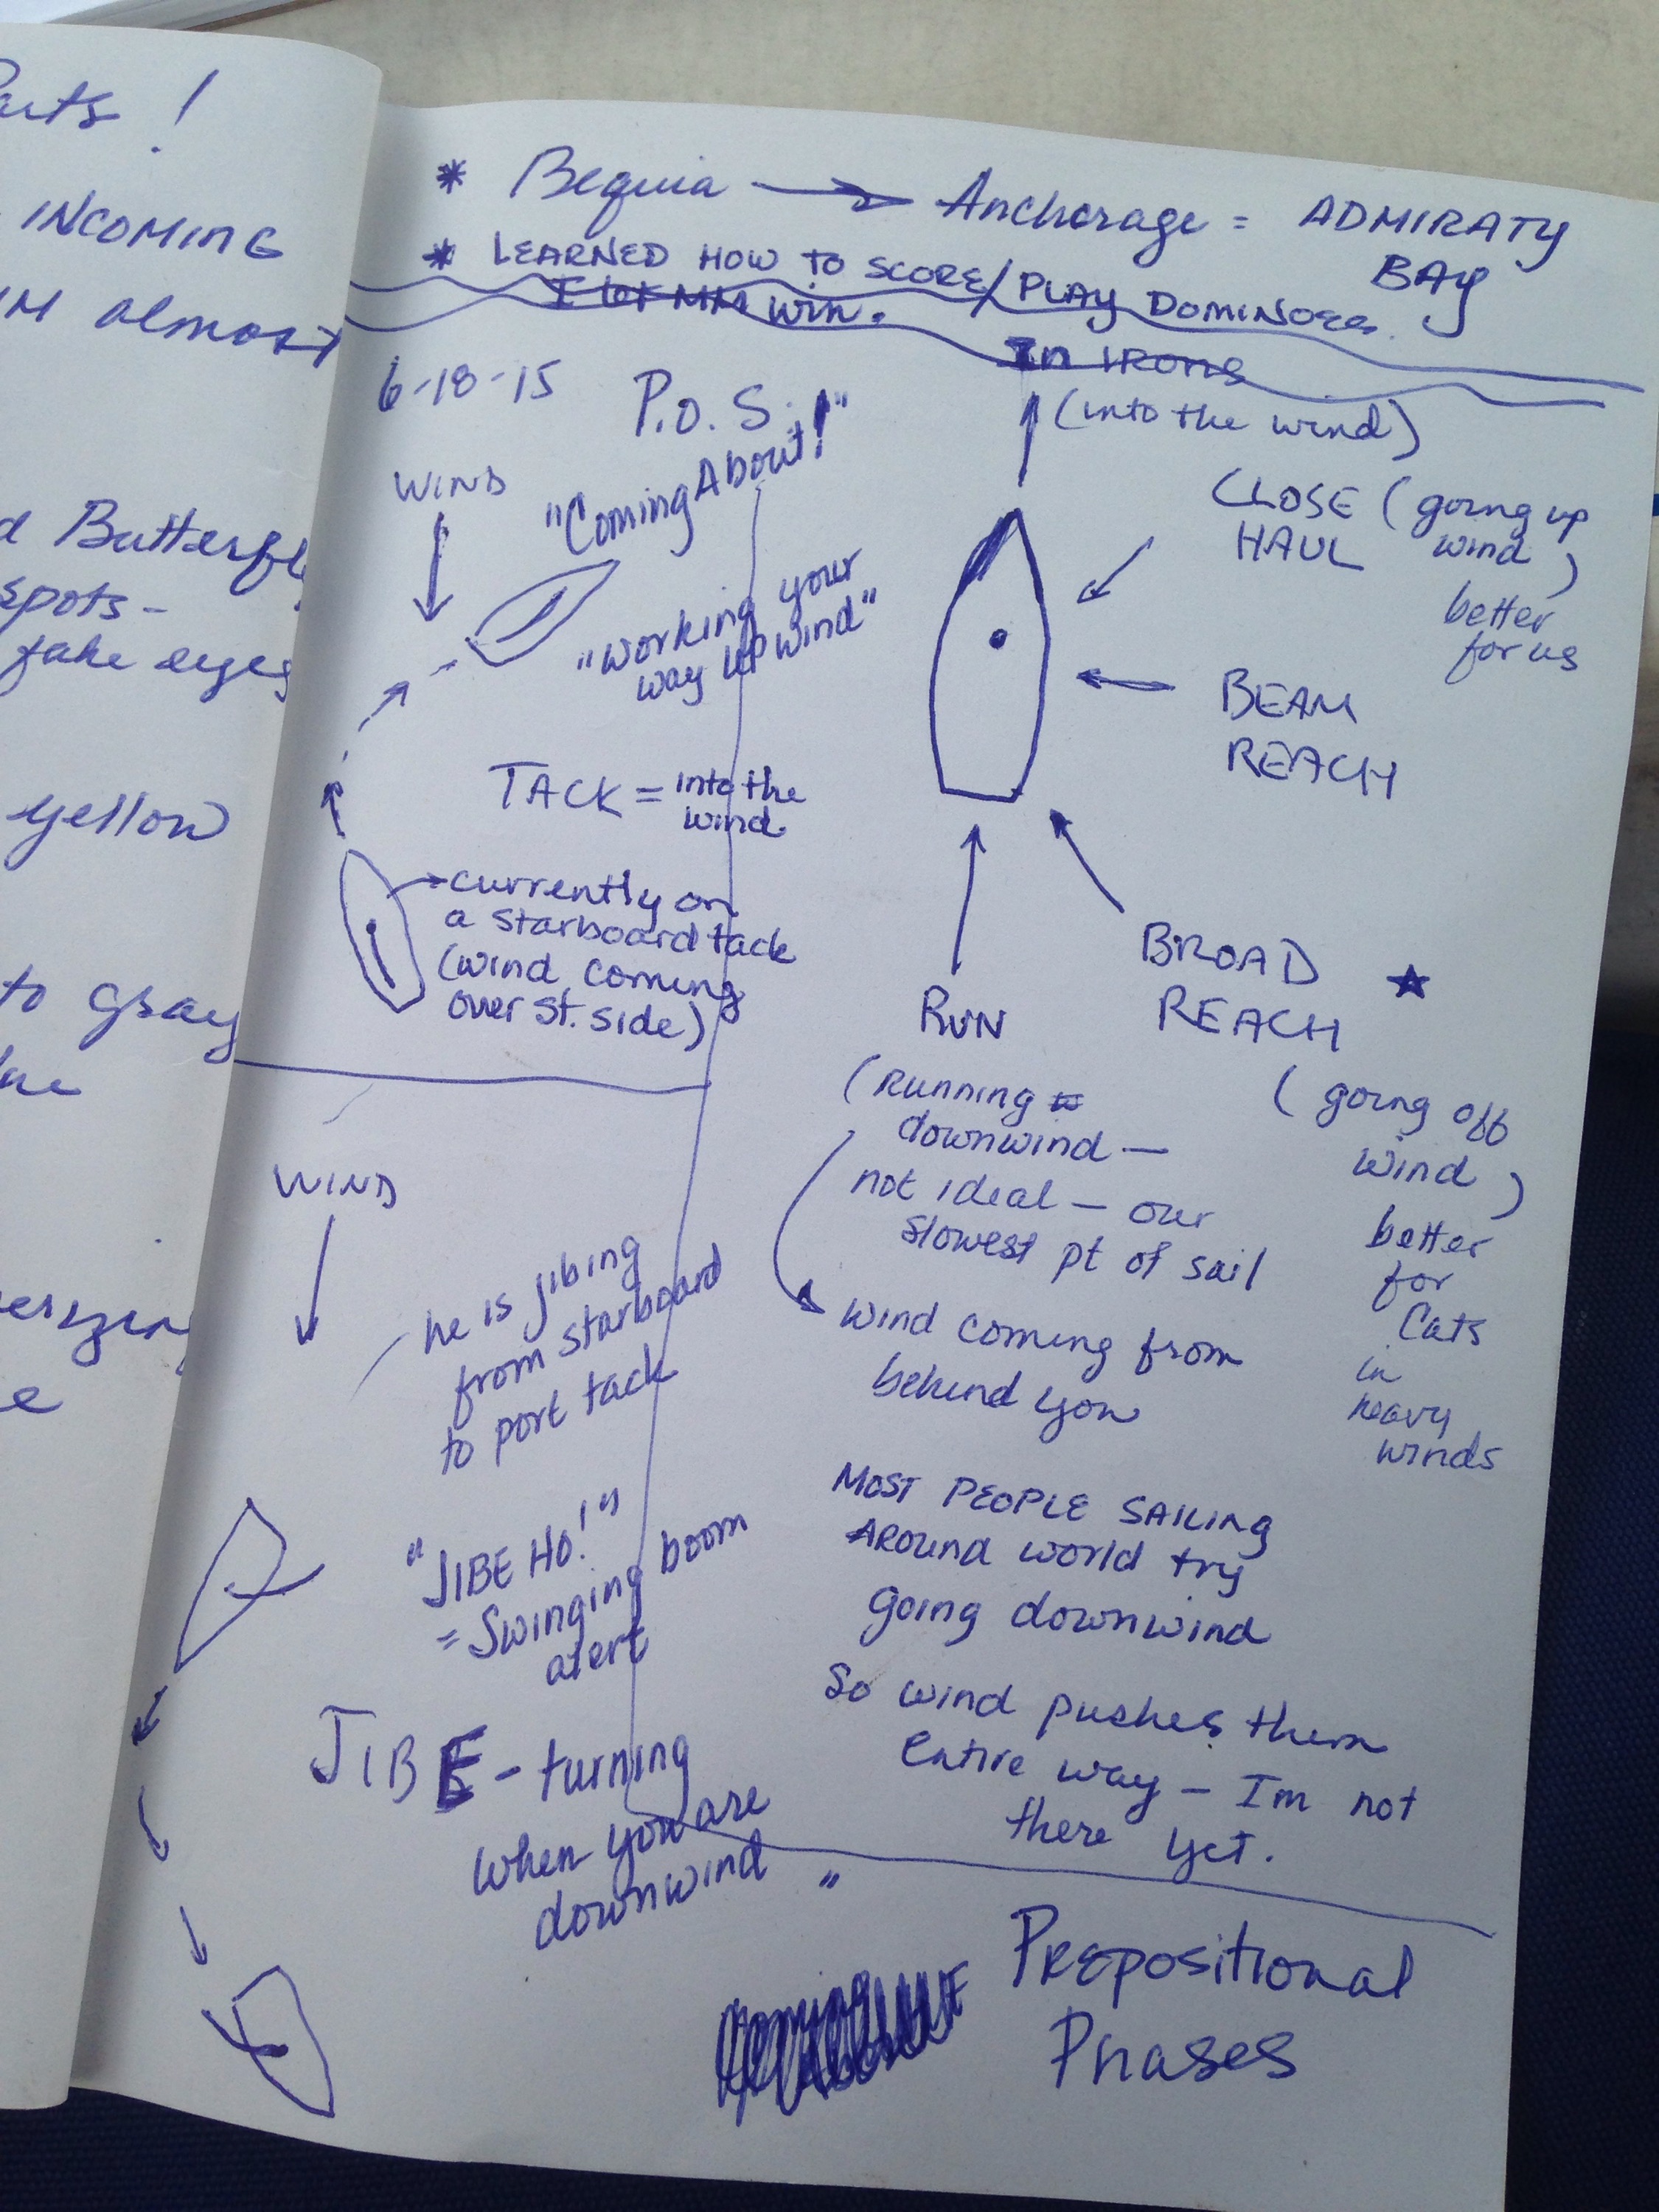 arts !
INCOMING
IM almost
d Butterfl
spots -
fake eyes
yellow
to gray
e
* Bequia → Anchorage = ADMIRATY
BAY
* LEARNED HOW TO SCORE/PLAY DOMINOES.
I let MM win.
In IRONS
(into the wind)
6-18-15
P.O.S.
WIND
"Coming About!"
"working your
way up wind"
TACK = into the
wind.
currently on
a starboard tack
(wind coming
over st. side)
CLOSE (going up
HAUL wind)
better
for us
BEAM
REACH
BROAD
REACH ★
(going off
wind)
better
for
Cats
in
heavy
winds
RUN
(Running
downwind —
not ideal — our
slowest pt of sail
wind coming from
behind you
MOST PEOPLE SAILING
AROUND world try
going downwind
So wind pushes them
Entire way — I'm not
there yet.
WIND
he is jibing
from starboard
to port tack
"JIBE HO!"
= Swinging boom
alert
JIBE - turning
when you are
downwind "
PREPOSITIONAL
PHASES